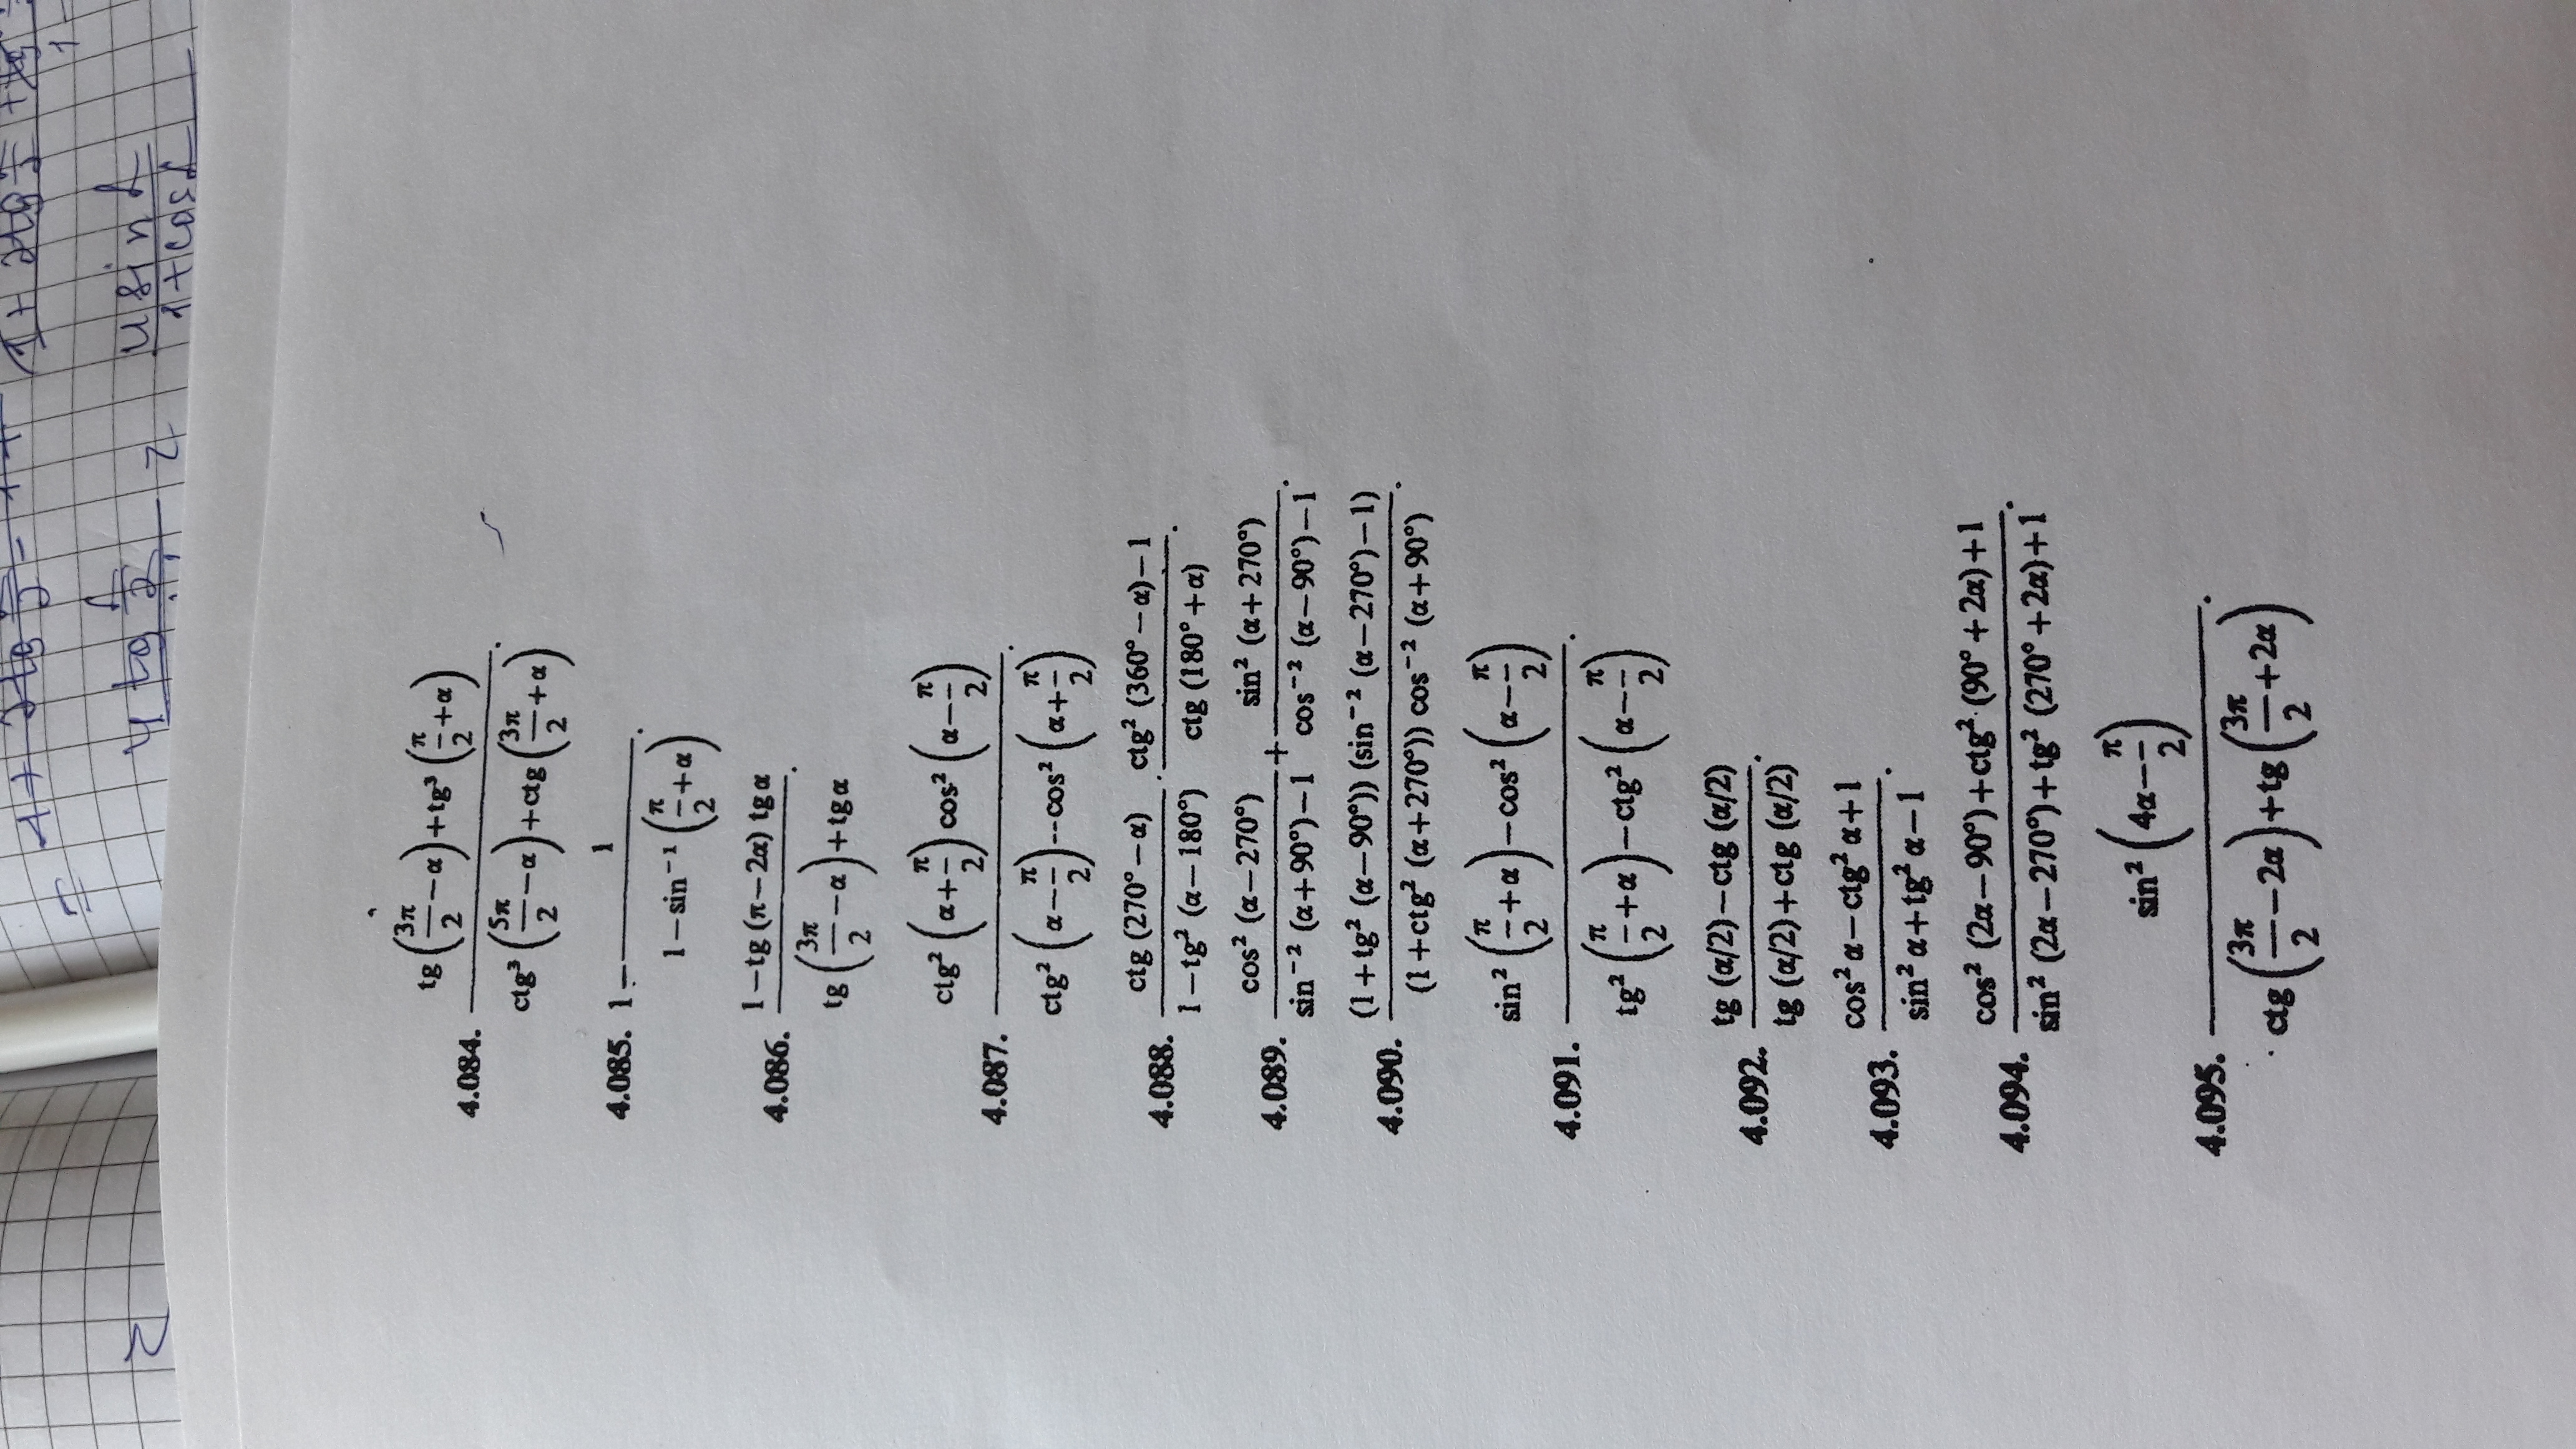 4 tg α/2
4 sin α
1+cos α
4.084. (tg(3π/2−α)+tg³(π/2+α))/(ctg³(5π/2−α)+ctg(3π/2+α)).
4.085. 1−1/(1−sin⁻¹(π/2+α)).
4.086. (1−tg(π−2α) tg α)/(tg(3π/2−α)+tg α).
4.087. (ctg²(α+π/2) cos²(α−π/2))/(ctg²(α−π/2)−cos²(α+π/2)).
4.088. ctg(270°−α)/(1−tg²(α−180°)) · (ctg²(360°−α)−1)/ctg(180°+α).
4.089. cos²(α−270°)/(sin⁻²(α+90°)−1) + sin²(α+270°)/(cos⁻²(α−90°)−1).
4.090. ((1+tg²(α−90°))(sin⁻²(α−270°)−1))/((1+ctg²(α+270°)) cos⁻²(α+90°)).
4.091. (sin²(π/2+α)−cos²(α−π/2))/(tg²(π/2+α)−ctg²(α−π/2)).
4.092. (tg(α/2)−ctg(α/2))/(tg(α/2)+ctg(α/2)).
4.093. (cos²α−ctg²α+1)/(sin²α+tg²α−1).
4.094. (cos²(2α−90°)+ctg²(90°+2α)+1)/(sin²(2α−270°)+tg²(270°+2α)+1).
4.095. sin²(4α−π/2)/(ctg(3π/2−2α)+tg(3π/2+2α)).